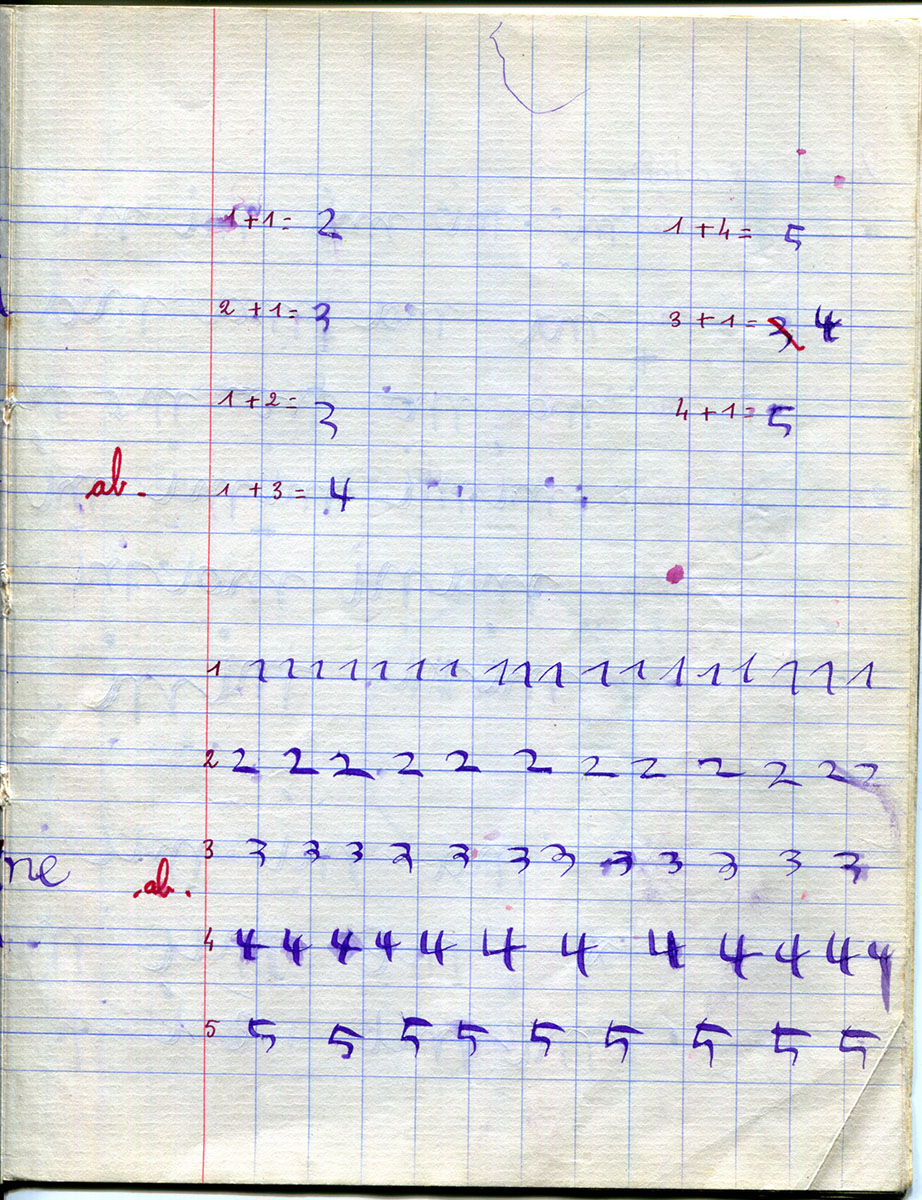 1+1= 2 1+4= 5
2+1= 3 3+1= 3 4
1+2= 3 4+1= 5
ab. 1+3= 4
1 1 1 1 1 1 1 1 1 1 1 1 1 1 1 1 1 1 1
2 2 2 2 2 2 2 2 2 2 2 2 2
3 3 3 3 3 3 3 3 3 3 3 3 3
ne ab.
4 4 4 4 4 4 4 4 4 4 4 4 4
5 5 5 5 5 5 5 5 5 5